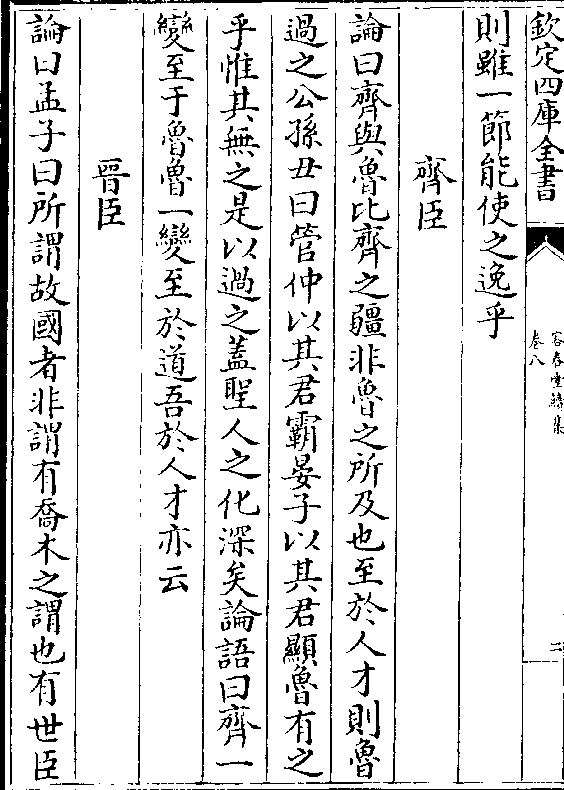 欽定四庫全書
容春堂續集
卷八
二
則雖一節能使之逸乎
齊臣
論曰齊與魯比齊之疆非魯之所及也至於人才則魯
過之公孫丑曰管仲以其君霸晏子以其君顯魯有之
乎惟其無之是以過之蓋聖人之化深矣論語曰齊一
變至于魯魯一變至於道吾於人才亦云
晉臣
論曰孟子曰所謂故國者非謂有喬木之謂也有世臣